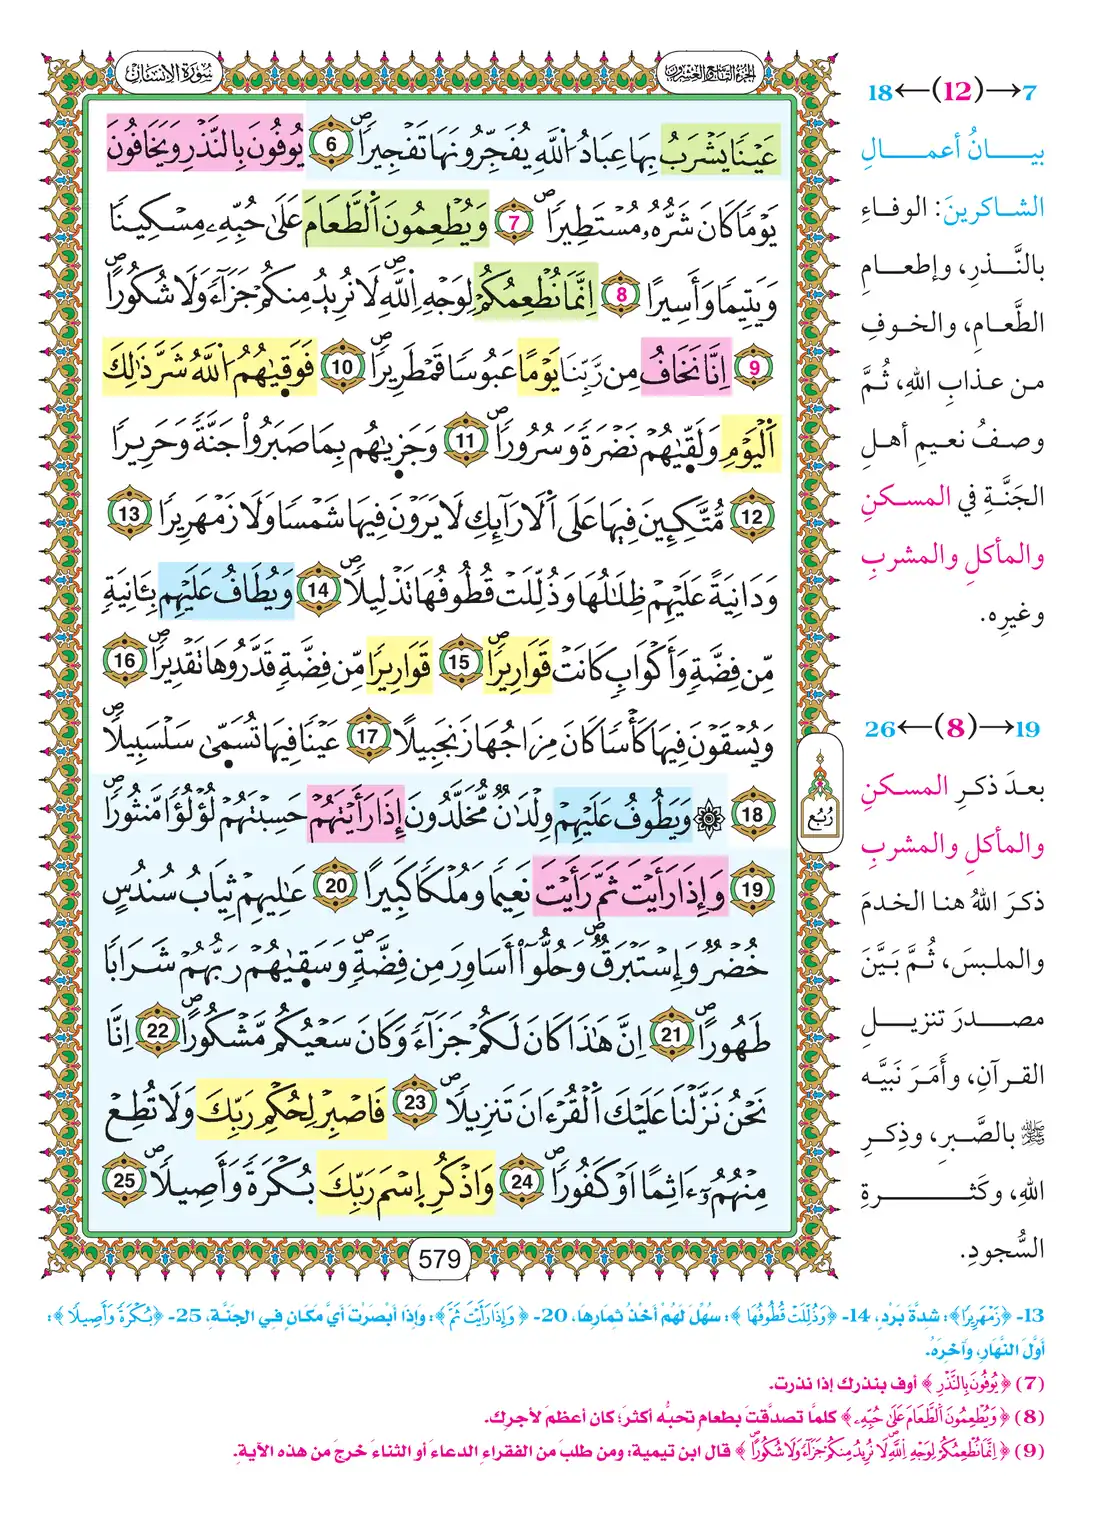 سُورَةُ الإِنسَانِ
الجُزْءُ التَّاسِعُ وَالعِشْرُونَ
عَيْنٗا يَشْرَبُ بِهَا عِبَادُ اُ۬للَّهِ يُفَجِّرُونَهَا تَفْجِيراٗۖ 6 يُوفُونَ بِالنَّذْرِ وَيَخَافُونَ
يَوْماٗ كَانَ شَرُّهُۥ مُسْتَطِيراٗۖ 7 وَيُطْعِمُونَ اَ۬لطَّعَامَ عَلَىٰ حُبِّهِۦ مِسْكِيناٗ
وَيَتِيماٗ وَأَسِيراً 8 اِنَّمَا نُطْعِمُكُمْ لِوَجْهِ اِ۬للَّهِۖ لَا نُرِيدُ مِنكُمْ جَزَآءٗ وَلَا شُكُوراًۖ
9 اِنَّا نَخَافُ مِن رَّبِّنَا يَوْماً عَبُوساٗ قَمْطَرِيراٗۖ 10 فَوَقَىٰهُمُ اُ۬للَّهُ شَرَّ ذَٰلِكَ
اَ۬لْيَوْمِ وَلَقَّىٰهُمْ نَضْرَةٗ وَسُرُوراٗۖ 11 وَجَزَىٰهُم بِمَا صَبَرُواْ جَنَّةٗ وَحَرِيراٗ
12 مُّتَّكِـِٕينَ فِيهَا عَلَى اَ۬لَارَآئِكِ لَا يَرَوْنَ فِيهَا شَمْساٗ وَلَا زَمْهَرِيراٗ 13
وَدَانِيَةً عَلَيْهِمْ ظِلَٰلُهَا وَذُلِّلَتْ قُطُوفُهَا تَذْلِيلاٗۖ 14 وَيُطَافُ عَلَيْهِم بِـَٔانِيَةٖ
مِّن فِضَّةٖ وَأَكْوَابٖ كَانَتْ قَوَارِيراٗۖ 15 قَوَارِيراٗ مِّن فِضَّةٖ قَدَّرُوهَا تَقْدِيراٗۖ 16
وَيُسْقَوْنَ فِيهَا كَأْساٗ كَانَ مِزَاجُهَا زَنجَبِيلاً 17 عَيْناٗ فِيهَا تُسَمَّىٰ سَلْسَبِيلاٗۖ
18 ۞ وَيَطُوفُ عَلَيْهِمْ وِلْدَٰنٞ مُّخَلَّدُونَ إِذَا رَأَيْتَهُمْ حَسِبْتَهُمْ لُؤْلُؤاٗ مَّنثُوراٗۖ
19 وَإِذَا رَأَيْتَ ثَمَّ رَأَيْتَ نَعِيماٗ وَمُلْكاٗ كَبِيراً 20 عَٰلِيهِمْ ثِيَابُ سُندُسٍ
خُضْرٞ وَإِسْتَبْرَقٞۖ وَحُلُّوٓاْ أَسَاوِرَ مِن فِضَّةٖۖ وَسَقَىٰهُمْ رَبُّهُمْ شَرَاباٗ
طَهُوراًۖ 21 اِنَّ هَٰذَا كَانَ لَكُمْ جَزَآءٗ وَكَانَ سَعْيُكُم مَّشْكُوراًۖ 22 اِنَّا
نَحْنُ نَزَّلْنَا عَلَيْكَ اَ۬لْقُرْءَانَ تَنزِيلاٗۖ 23 فَاصْبِرْ لِحُكْمِ رَبِّكَ وَلَا تُطِعْ
مِنْهُمُۥٓ ءَاثِماً اَوْ كَفُوراٗۖ 24 وَاذْكُرِ اِ۪سْمَ رَبِّكَ بُكْرَةٗ وَأَصِيلاٗۖ 25
رُبُع
579
7→(12)←18
بيـانُ أعمـالِ
الشاكرينَ: الوفاءِ
بالنَّذرِ، وإطعامِ
الطَّعامِ، والخوفِ
من عذابِ اللهِ، ثُمَّ
وصفُ نعيمِ أهلِ
الجَنَّةِ في المسكنِ
والمأكلِ والمشربِ
وغيرِه.
19→(8)←26
بعدَ ذكرِ المسكنِ
والمأكلِ والمشربِ
ذكرَ اللهُ هنا الخدمَ
والملبسَ، ثُمَّ بَيَّنَ
مصدرَ تنزيلِ
القرآنِ، وأَمَرَ نَبيَّه
ﷺ بالصَّبرِ، وذِكرِ
اللهِ، وكَثرةِ
السُّجودِ.
13- ﴿زَمْهَرِيرًا﴾: شدَّةَ بَرْدٍ، 14- ﴿وَذُلِّلَتْ قُطُوفُهَا﴾: سُهِّلَ لَهُمْ أَخْذُ ثِمَارِهَا، 20- ﴿وَإِذَا رَأَيْتَ ثَمَّ﴾: وَإِذَا أَبْصَرْتَ أَيَّ مَكَانٍ فِي الجَنَّةِ، 25- ﴿بُكْرَةً وَأَصِيلًا﴾:
أَوَّلَ النَّهَارِ، وَآخِرَهُ.
(7) ﴿يُوفُونَ بِالنَّذْرِ﴾ أوف بنذرك إذا نذرت.
(8) ﴿وَيُطْعِمُونَ الطَّعَامَ عَلَىٰ حُبِّهِ﴾ كلمَّا تصدَّقتَ بطعامٍ تحبُّه أكثرَ؛ كان أعظمَ لأجرِك.
(9) ﴿اِنَّمَا نُطْعِمُكُمْ لِوَجْهِ اِ۬للَّهِۖ لَا نُرِيدُ مِنكُمْ جَزَآءٗ وَلَا شُكُوراًۖ﴾ قال ابن تيمية: ومن طلبَ من الفقراءِ الدعاءَ أو الثناءَ خرجَ من هذه الآيةِ.